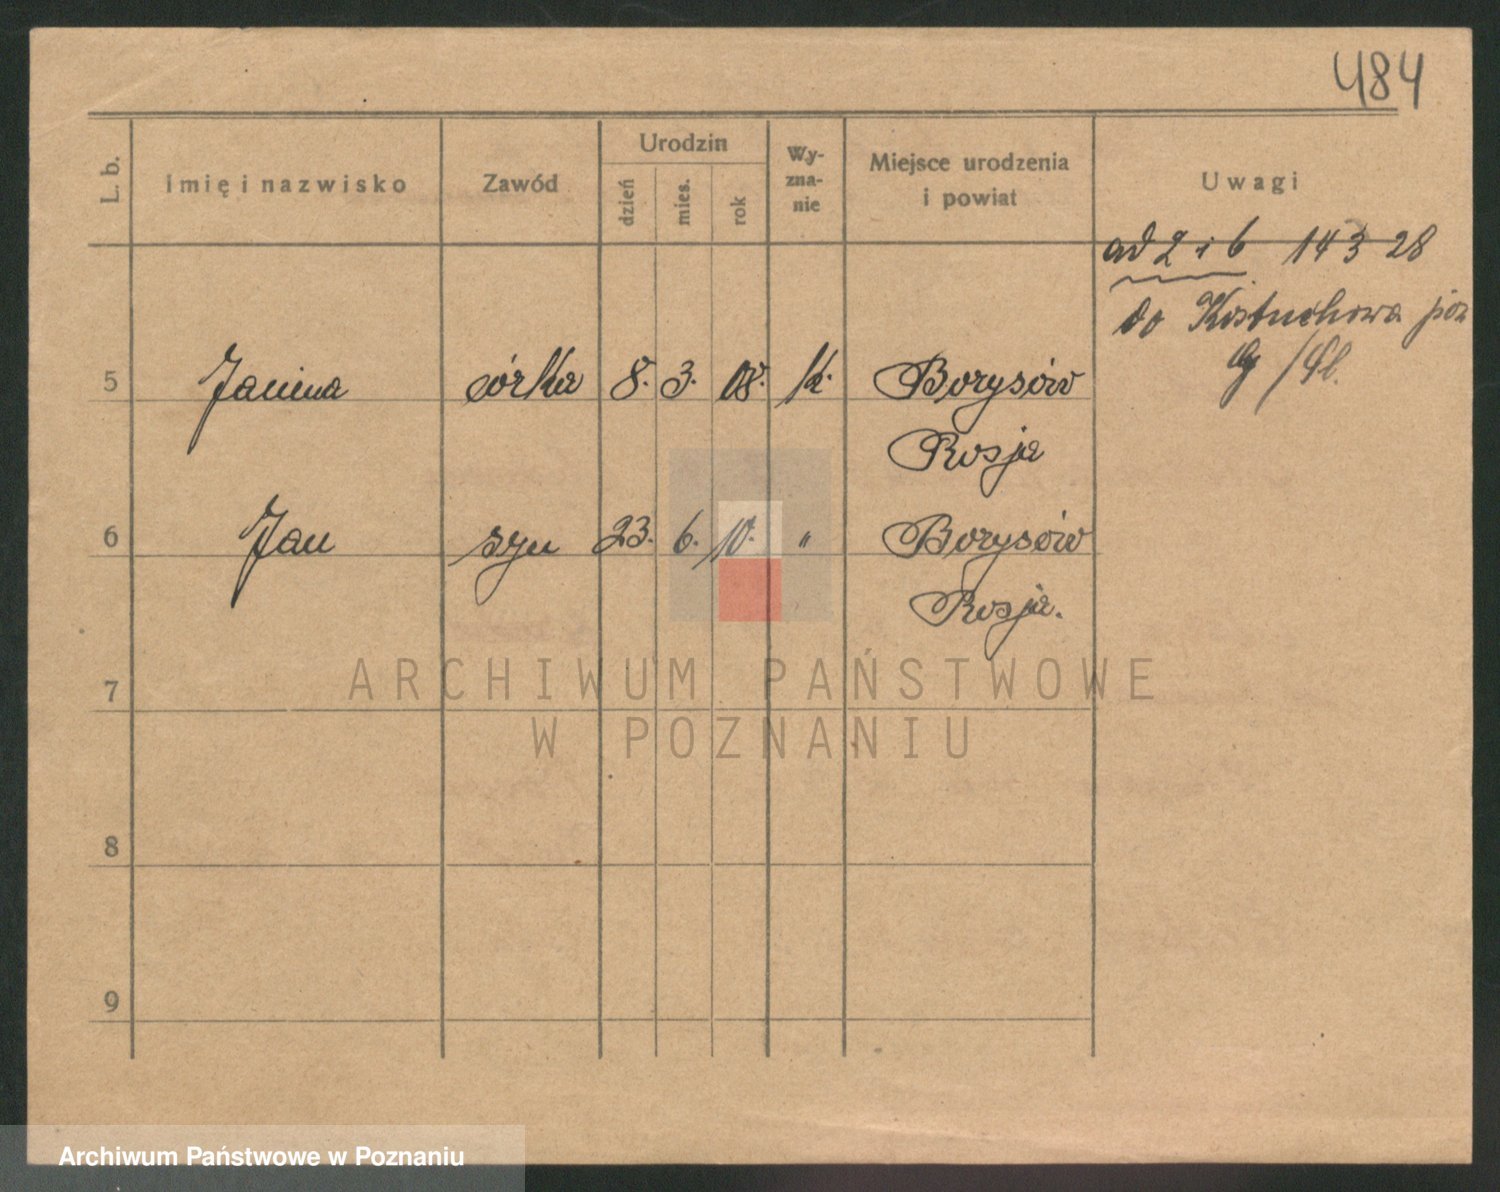 484
L. b. Imię i nazwisko Zawód Urodzin Wy-zna-nie Miejsce urodzenia i powiat Uwagi
dzień mies. rok
ad 2 i 6 14 3 28
do Kostuchowa
5 Janina córka 8. 3. 08. k. Borysów
Rosja
6 Jan syn 23. 6. 10. " Borysów
Rosja.
7
8
9
ARCHIWUM PAŃSTWOWE
W POZNANIU
Archiwum Państwowe w Poznaniu